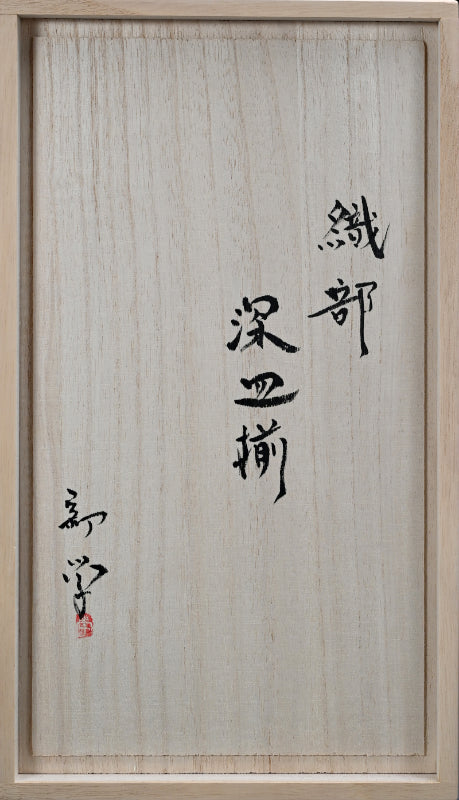 織部
深皿揃
新学